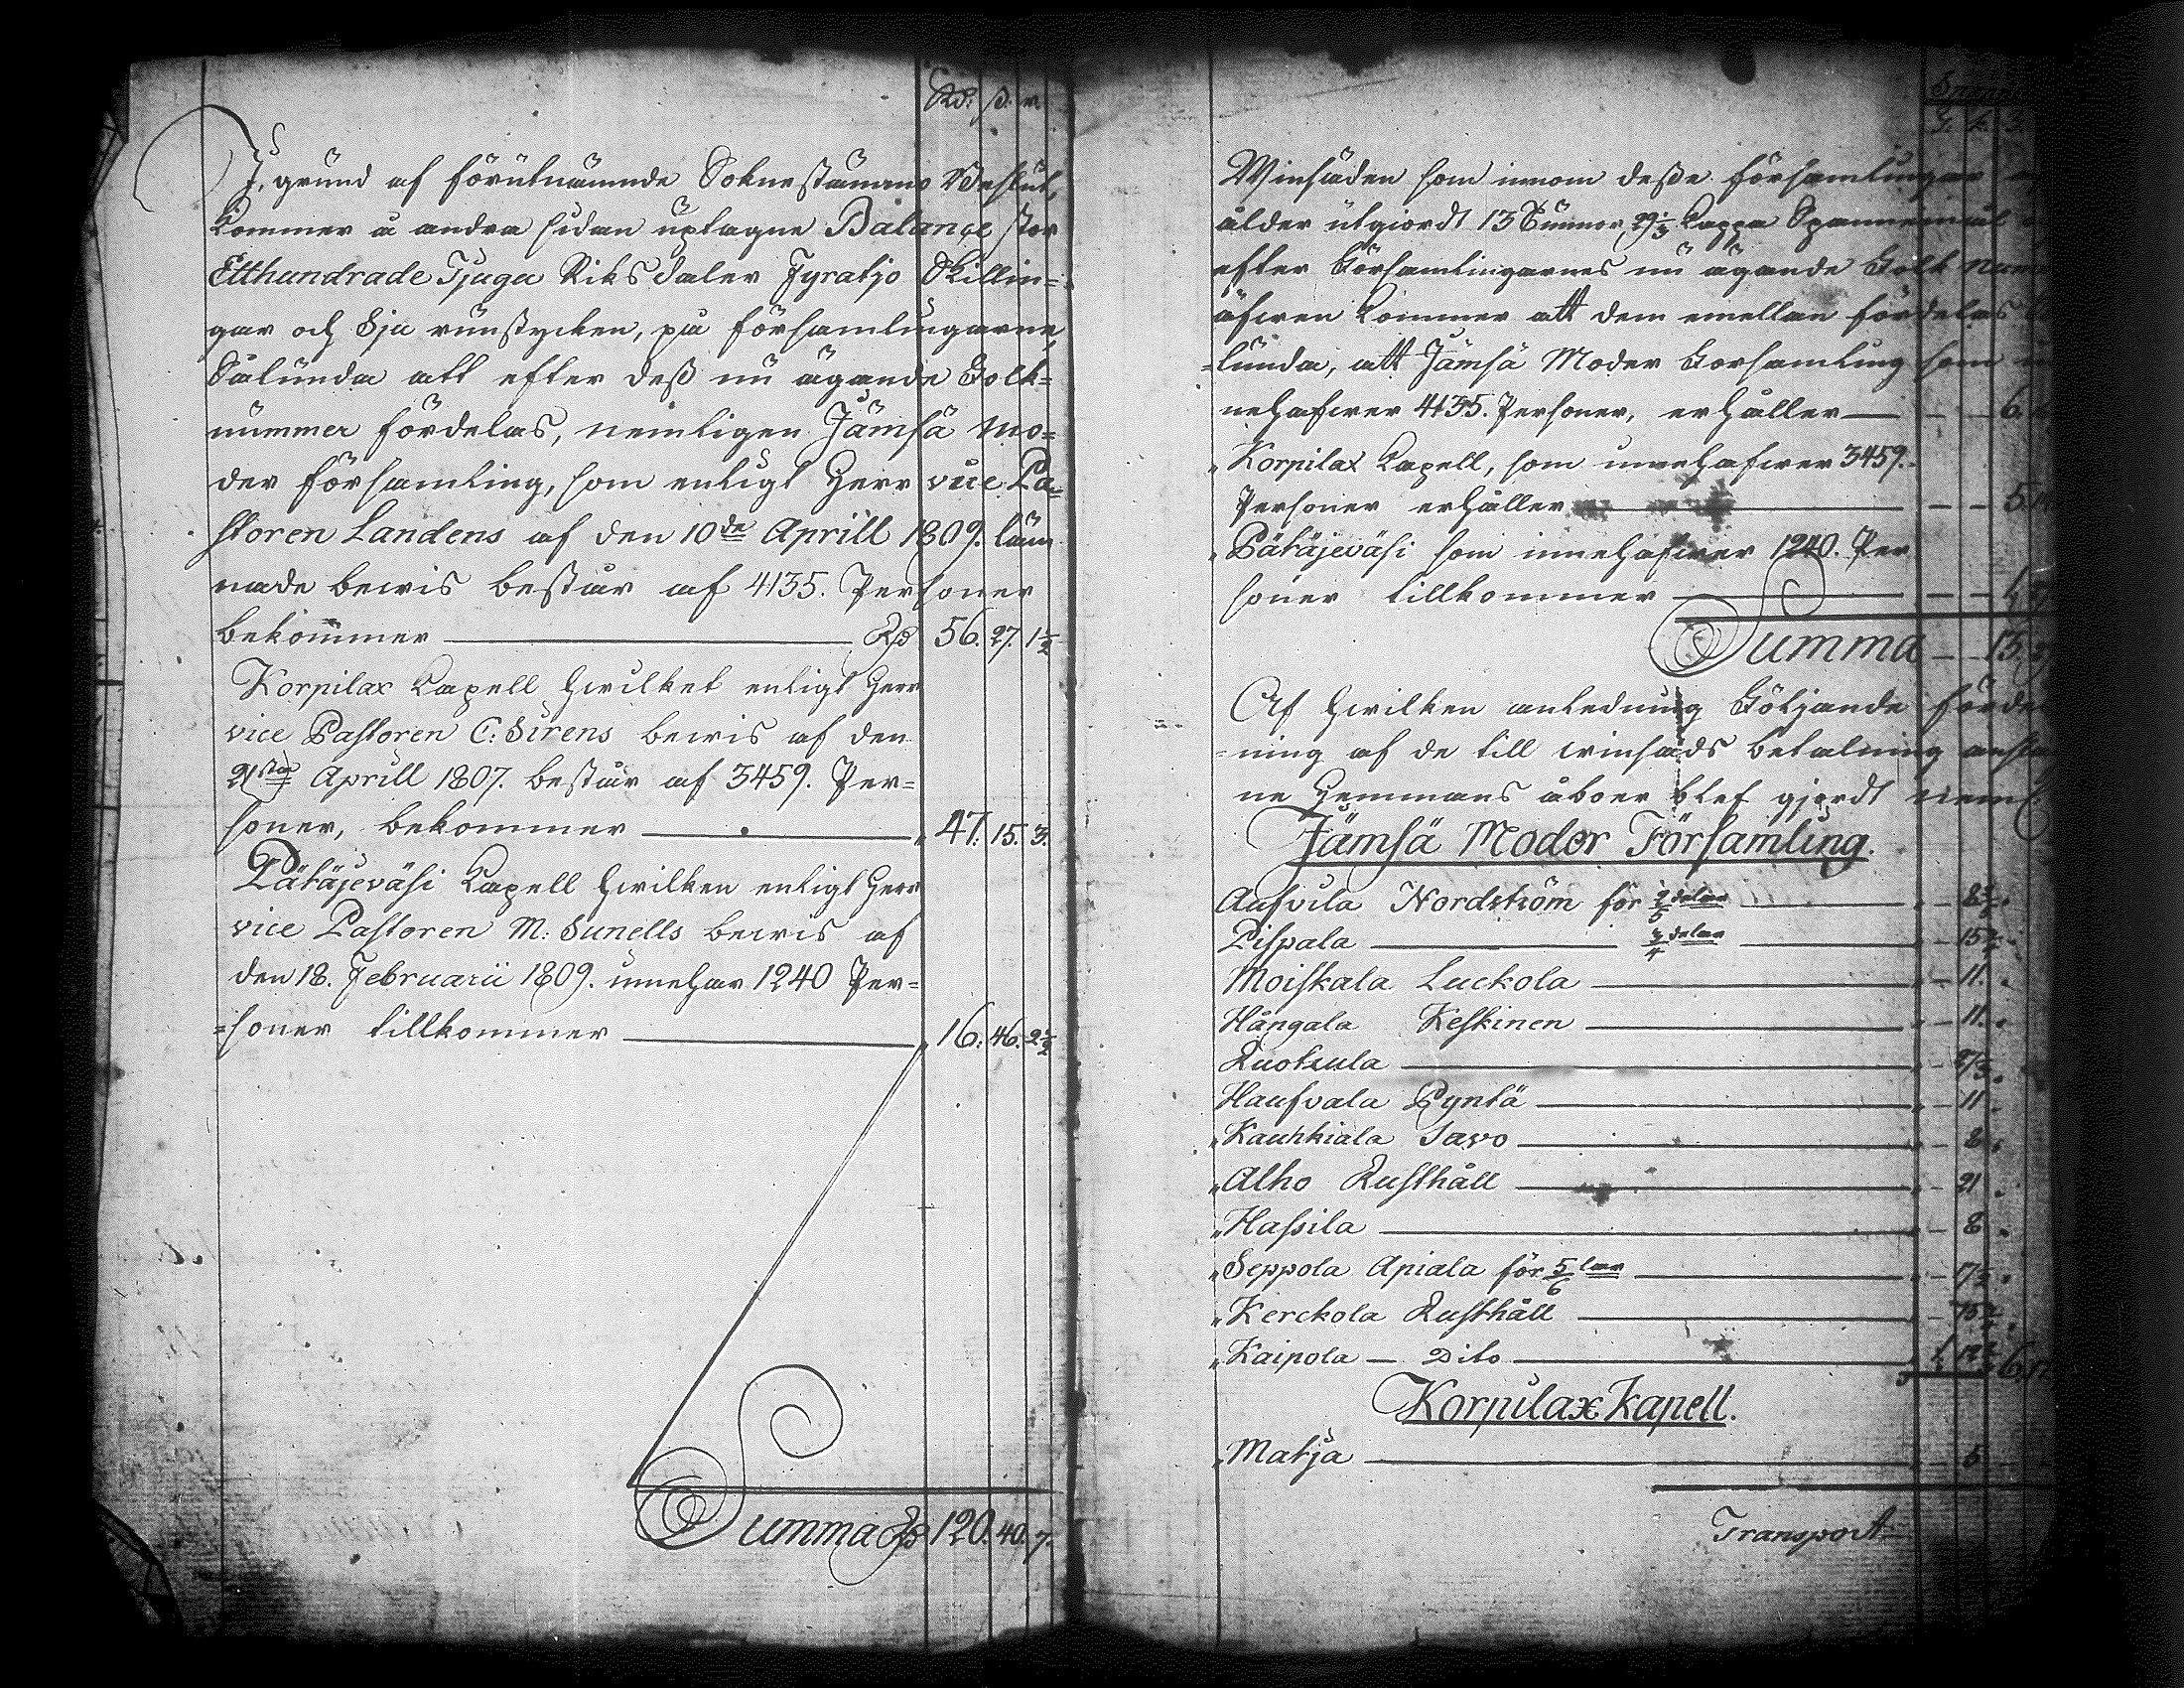 Rd. ß. r.
I, grund af förutnämnde Sokne stämmo Beslut,
kommer å andra sidan uptagne Balançe stor
Etthundrade Tjugu Riksdaler Fyratjo Skillin=
gar och Sju runstycken, på församlingarne,
Sålunda att efter deß nu ägande Folk=
nummer fördelas, nemligen Jämsä Mo=
der församling, som enligt Herr vice Pa=
storen Landens af den 10de Aprill 1809. läm
nade bewis består af 4135. Personer
bekommer Rd 56. 27. 1½
Korpilax Capell hwilket enligt Herr
vice Pastoren C: Sirens bewis af den
21sta Aprill 1807. består af 3459. Per=
soner, bekommer 47. 15. 3.
Pätäjeväsi Capell hwilken enligt Herr
vice Pastoren M: Sunells bewis af
den 18. Februarii 1809. innehar 1240 Per=
=soner tillkommer 16. 46. 2½
Summa Rd 120. 40. 7.
Spanmål
T. k.
Winsäden som innom deße församlingar
ålder utgiordt 13 Tunnor 29⅓ Kappa Spannemål
efter Församlingarnes nu ägande Folk num
äfwen kommer att dem emellan fördelas
=lunda, att Jämsä Moder Forsamling som
nehafwer 4135. Personer, erhåller 6.
" Korpilax Capell, som innehafwer 3459.
Personer erhåller 5.
" Pätäjeväsi som innehafwer 1240. Per
soner tillkommer
Summa 13.
Af hwilken anledning Följande förde
=ning af de till winsäds betalning ansla
ne Hemmans åboer blef gjordt neml:
Jämsä Moder Församling.
Aufvila Nordström för 2/5 delar
Pispala 3/4 delar
Moiskala Luckola 11.
Hångala Keskinen 11.
Ruotsula
Haufvala Pyntä 11.
" Kauhkiala Savo 8.
" Alho Rusthåll 21.
" Haßila 8.
" Seppola Apiala för 5/6 lar
" Kerckola Rusthåll
" Kaipola — Dito
Korpilax Kapell.
" Matja
Transport